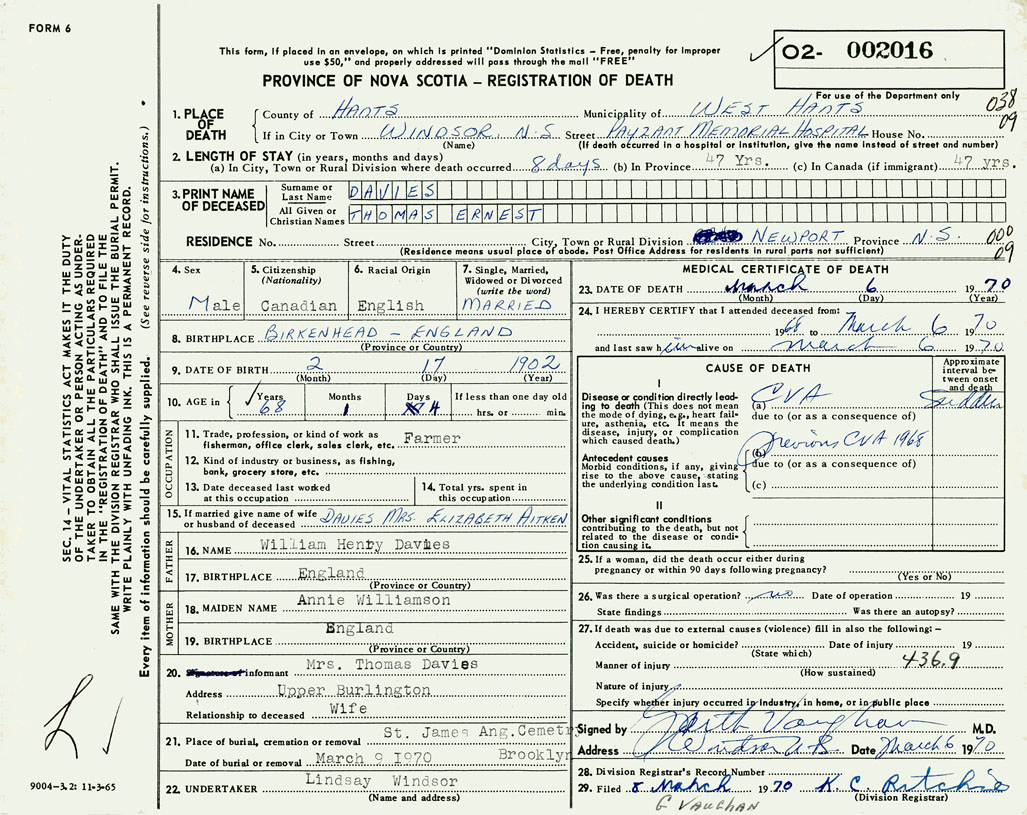 FORM 6
This form, if placed in an envelope, on which is printed "Dominion Statistics – Free, penalty for improper
use $50," and properly addressed will pass through the mail "FREE"
02- 002016
PROVINCE OF NOVA SCOTIA – REGISTRATION OF DEATH
For use of the Department only
038
09
1. PLACE OF DEATH
County of HANTS Municipality of WEST HANTS
If in City or Town WINDSOR N.S. Street PAYZANT MEMORIAL HOSPITAL House No.
(Name) (If death occurred in a hospital or institution, give the name instead of street and number)
2. LENGTH OF STAY (in years, months and days)
(a) In City, Town or Rural Division where death occurred 8 days (b) In Province 47 Yrs. (c) In Canada (if immigrant) 47 yrs.
3. PRINT NAME OF DECEASED
Surname or Last Name DAVIES
All Given or Christian Names THOMAS ERNEST
RESIDENCE No. Street City, Town or Rural Division NEWPORT Province N.S.
000
09
(Residence means usual place of abode. Post Office Address for residents in rural parts not sufficient)
4. Sex
Male
5. Citizenship
(Nationality)
Canadian
6. Racial Origin
English
7. Single, Married,
Widowed or Divorced
(write the word)
MARRIED
8. BIRTHPLACE BIRKENHEAD – ENGLAND
(Province or Country)
9. DATE OF BIRTH 2 17 1902
(Month) (Day) (Year)
10. AGE in Years Months Days If less than one day old
68 1 hrs. or min.
OCCUPATION
11. Trade, profession, or kind of work as
fisherman, office clerk, sales clerk, etc. Farmer
12. Kind of industry or business, as fishing,
bank, grocery store, etc.
13. Date deceased last worked
at this occupation
14. Total yrs. spent in
this occupation
15. If married give name of wife
or husband of deceased DAVIES MRS. ELIZABETH AITKEN
FATHER
16. NAME William Henry Davies
17. BIRTHPLACE England
(Province or Country)
MOTHER
18. MAIDEN NAME Annie Williamson
19. BIRTHPLACE England
(Province or Country)
20. Signature of informant Mrs. Thomas Davies
Address Upper Burlington
Relationship to deceased Wife
21. Place of burial, cremation or removal St. James Ang.Cemetry
Brooklyn
Date of burial or removal March 9 1970
22. UNDERTAKER Lindsay Windsor
(Name and address)
MEDICAL CERTIFICATE OF DEATH
23. DATE OF DEATH March 6 1970
(Month) (Day) (Year)
24. I HEREBY CERTIFY that I attended deceased from:
1968 to March 6 1970
and last saw him alive on March 6 1970
CAUSE OF DEATH
Approximate
interval be-
tween onset
and death
I
Disease or condition directly lead-
ing to death (This does not mean
the mode of dying, e.g., heart fail-
ure, asthenia, etc. It means the
disease, injury, or complication
which caused death.)
(a) CVA Sudden
due to (or as a consequence of)
Antecedent causes
Morbid conditions, if any, giving
rise to the above cause, stating
the underlying condition last.
(b) Previous CVA 1968
due to (or as a consequence of)
(c)
II
Other significant conditions
contributing to the death, but not
related to the disease or condi-
tion causing it.
25. If a woman, did the death occur either during
pregnancy or within 90 days following pregnancy?
(Yes or No)
26. Was there a surgical operation? no Date of operation 19
State findings Was there an autopsy?
27. If death was due to external causes (violence) fill in also the following: –
Accident, suicide or homicide? Date of injury 19
(State which)
Manner of injury 436.9
(How sustained)
Nature of injury
Specify whether injury occurred in industry, in home, or in public place
Signed by Garth Vaughan M.D.
Address Windsor N.S. Date March 6 1970
28. Division Registrar's Record Number
29. Filed 8 March 1970 K. C. Ritchie
(Division Registrar)
G VAUGHAN
SEC. 14 – VITAL STATISTICS ACT MAKES IT THE DUTY
OF THE UNDERTAKER OR PERSON ACTING AS UNDER-
TAKER TO OBTAIN ALL THE PARTICULARS REQUIRED
IN THE "REGISTRATION OF DEATH" AND TO FILE THE
SAME WITH THE DIVISION REGISTRAR WHO SHALL ISSUE THE BURIAL PERMIT.
WRITE PLAINLY WITH UNFADING INK. THIS IS A PERMANENT RECORD.
Every item of information should be carefully supplied. (See reverse side for instructions.)
9004-3.2: 11-3-65